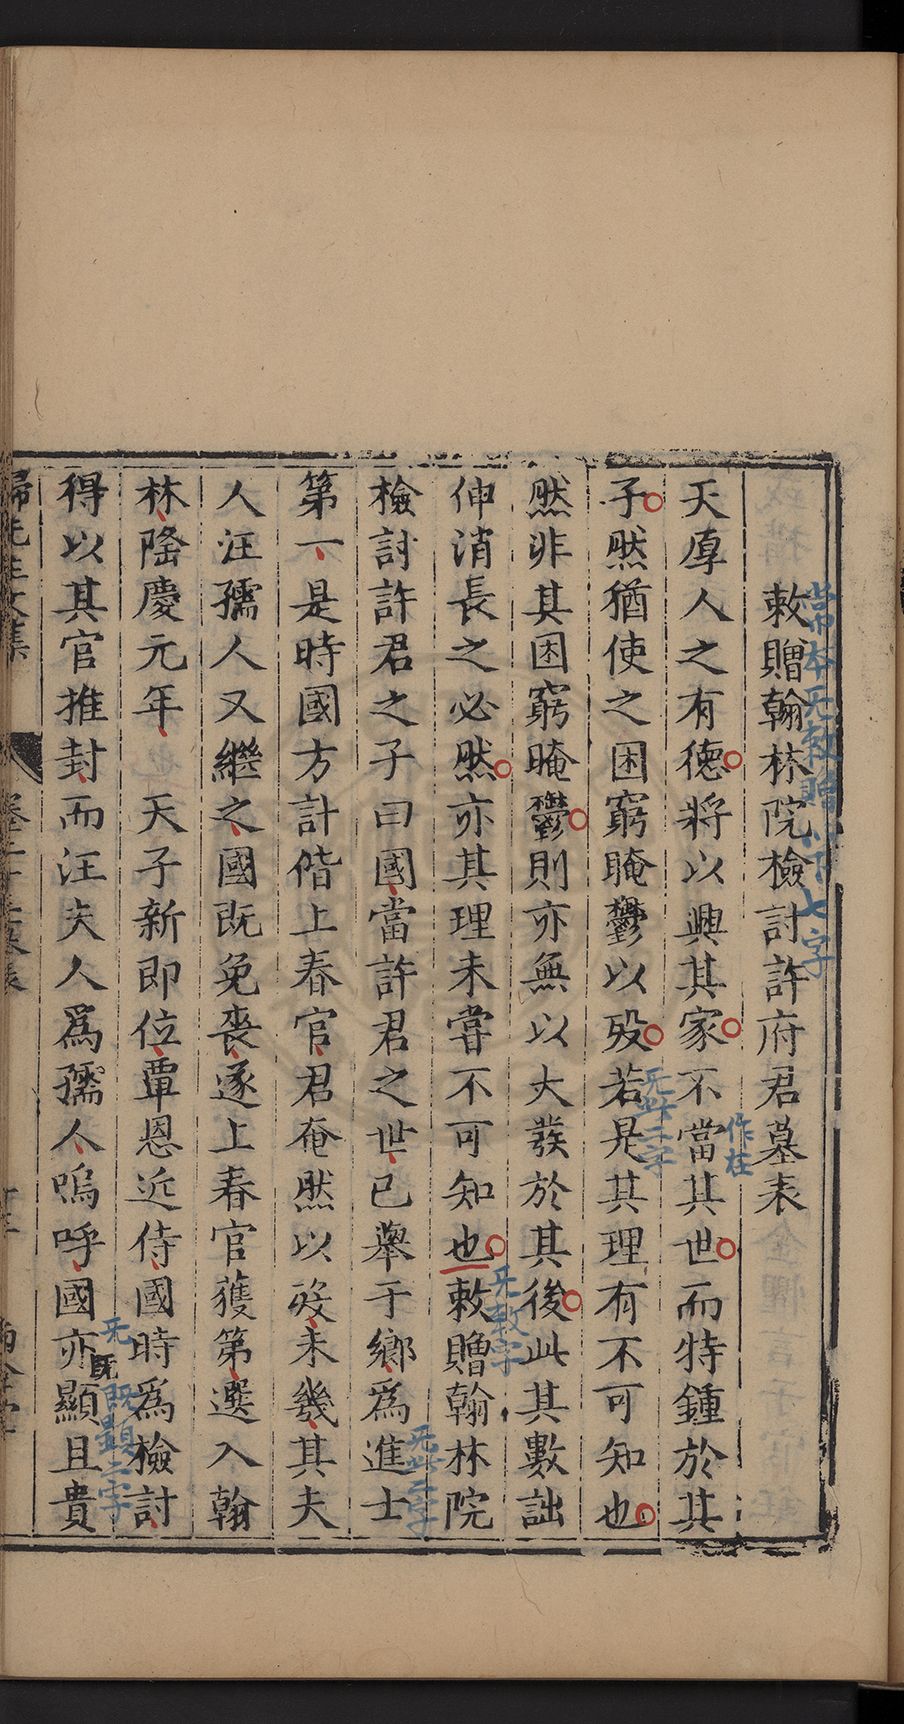 敕贈翰林院檢討許府君墓表
常本无敕贈以下七字
天厚人之有德將以興其家不當其世而特鍾於其
作在
子然猶使之困窮晻鬱以歿若是其理有不可知也
无此二字
然非其困窮晻鬱則亦無以大發於其後此其數詘
伸消長之必然亦其理未嘗不可知也敕贈翰林院
无敕字
檢討許君之子曰國當許君之世已舉于鄉爲進士
无此二字
第一是時國方計偕上春官君奄然以歿未幾其夫
人汪孺人又繼之國既免喪遂上春官獲第選入翰
林隆慶元年 天子新即位覃恩近侍國時爲檢討
得以其官推封而汪夫人爲孺人嗚呼國亦顯且貴
无
既
既顯二字
歸先生文集